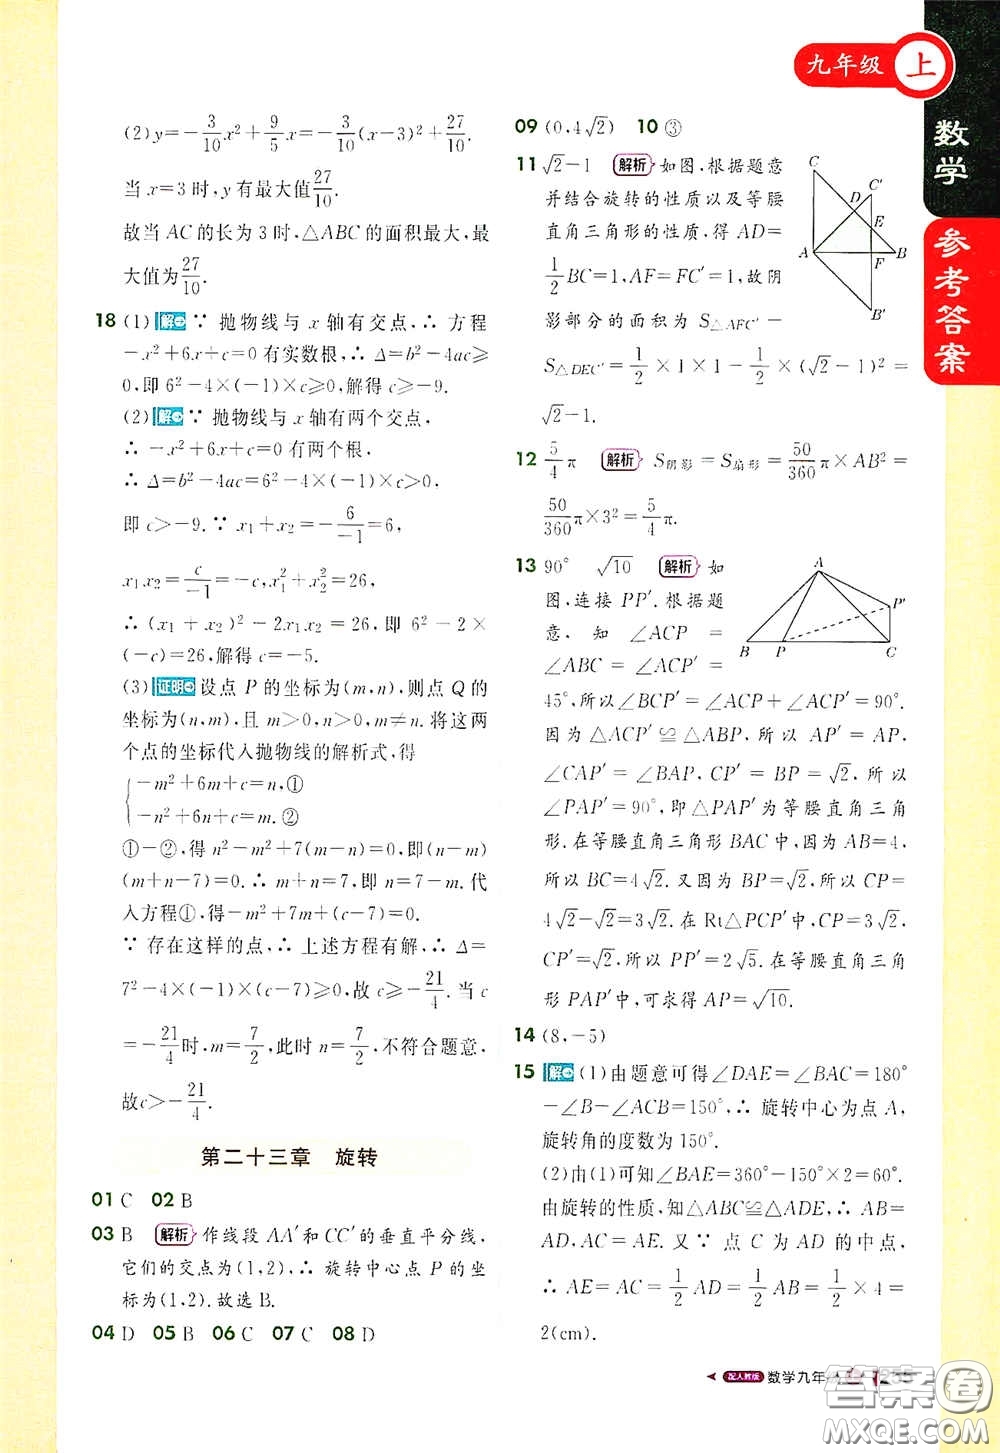 九年级 上
数学
参考答案
(2)y=-3/10x²+9/5x=-3/10(x-3)²+27/10.
当x=3时,y有最大值27/10.
故当AC的长为3时,△ABC的面积最大,最
大值为27/10.
18 (1)解 ∵ 抛物线与x轴有交点,∴ 方程
-x²+6x+c=0有实数根,∴ Δ=b²-4ac≥
0,即6²-4×(-1)×c≥0,解得c≥-9.
(2)解 ∵ 抛物线与x轴有两个交点,
∴ -x²+6x+c=0有两个根,
∴ Δ=b²-4ac=6²-4×(-1)×c>0,
即c>-9.∵ x₁+x₂=-6/-1=6,
x₁x₂=c/-1=-c,x₁²+x₂²=26,
∴ (x₁+x₂)²-2x₁x₂=26,即6²-2×
(-c)=26,解得c=-5.
(3)证明 设点P的坐标为(m,n),则点Q的
坐标为(n,m),且m>0,n>0,m≠n.将这两
个点的坐标代入抛物线的解析式,得
-m²+6m+c=n,①
-n²+6n+c=m.②
①-②,得n²-m²+7(m-n)=0,即(m-n)
(m+n-7)=0.∴ m+n=7,即n=7-m.代
入方程①,得-m²+7m+c-7=0.
∵ 存在这样的点,∴ 上述方程有解,∴ Δ=
7²-4×(-1)×(c-7)≥0,故c≥-21/4.当c
=-21/4时,m=7/2,此时n=7/2,不符合题意,
故c>-21/4.
第二十三章 旋转
01 C 02 B
03 B 解析 作线段AA′和CC′的垂直平分线,
它们的交点为(1,2),∴ 旋转中心点P的坐
标为(1,2).故选B.
04 D 05 B 06 C 07 C 08 D
09 (0,4√2) 10 ③
11 √2-1 解析 如图,根据题意
并结合旋转的性质以及等腰
直角三角形的性质,得AD=
1/2BC=1,AF=FC′=1,故阴
影部分的面积为S△AFC′-
S△DEC′=1/2×1×1-1/2×(√2-1)²=
√2-1.
C C′ D E A F B B′
12 5/4π 解析 S阴影=S扇形=50/360π×AB²=
50/360π×3²=5/4π.
13 90° √10 解析 如
图,连接PP′.根据题
意,知∠ACP=
∠ABC=∠ACP′=
45°,所以∠BCP′=∠ACP+∠ACP′=90°.
A P′ B P C
因为△ACP′≌△ABP,所以AP′=AP,
∠CAP′=∠BAP,CP′=BP=√2,所以
∠PAP′=90°,即△PAP′为等腰直角三角
形.在等腰直角三角形BAC中,因为AB=4,
所以BC=4√2.又因为BP=√2,所以CP=
4√2-√2=3√2.在Rt△PCP′中,CP=3√2,
CP′=√2,所以PP′=2√5.在等腰直角三角
形PAP′中,可求得AP=√10.
14 (8,-5)
15 解 (1)由题意可得∠DAE=∠BAC=180°
-∠B-∠ACB=150°,∴ 旋转中心为点A,
旋转角的度数为150°.
(2)由(1)可知∠BAE=360°-150°×2=60°.
由旋转的性质,知△ABC≌△ADE,∴ AB=
AD,AC=AE.又∵ 点C为AD的中点,
∴ AE=AC=1/2AD=1/2AB=1/2×4=
2(cm).
配人教版 数学九年
答案卷
MXQE.COM